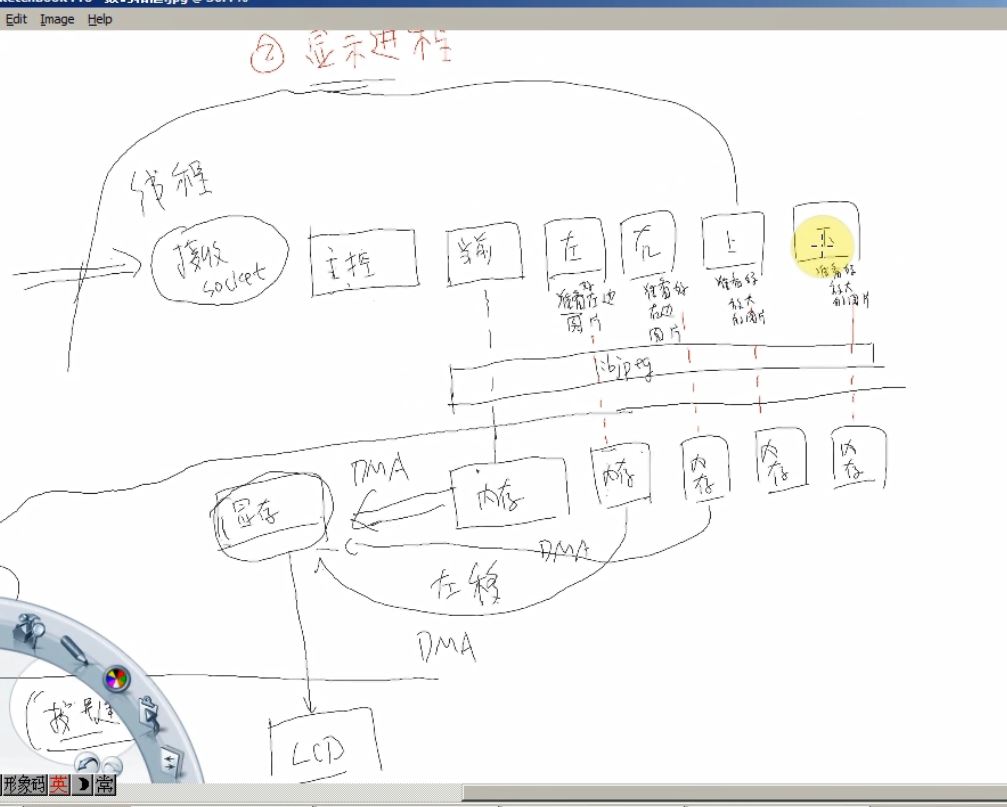 Edit Image Help
② 显示进程
线程
接收
socket
主控
当前
左
右
上
下
准备好左边
图片
准备好
右边
图片
准备好
放大
的图片
准备好
放大
的图片
libjpeg
DMA
显存
内存
内存
内存
内存
内存
DMA
左移
DMA
LCD
形象码 英 常